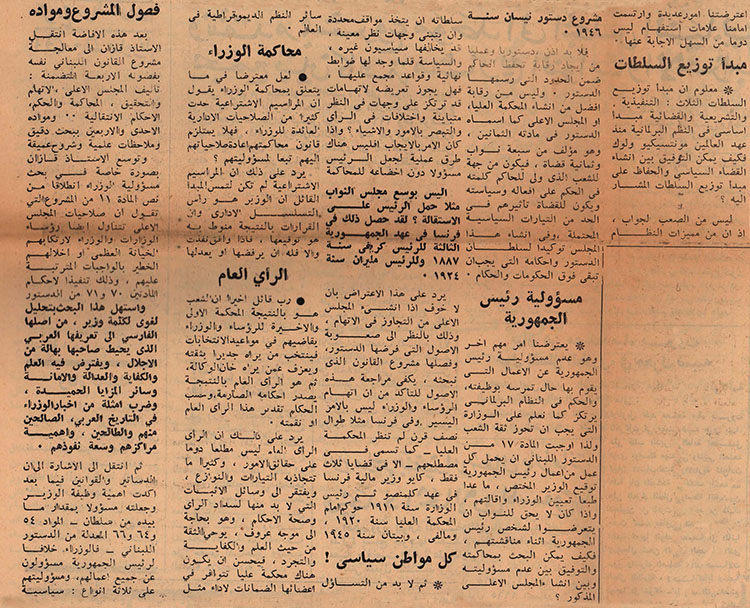 اعترضتنا امور عديدة وارتسمت
امامنا علامات استفهام ليس
دوما من السهل الاجابة عنها .
مبدأ توزيع السلطات
* معلوم ان مبدأ توزيع
السلطات الثلاث : التنفيذية
والتشريعية والقضائية مبدأ
اساسي في النظم البرلمانية منذ
عهد العالمين مونتسيكيو ولوك
فكيف يمكن التوفيق بين انشاء
القضاء السياسي والحفاظ على
مبدأ توزيع السلطات المشار
اليه ؟
ليس من الصعب لجواب ،
اذ ان من مميزات النظام
مشروع دستور نيسان سنة
١٩٤٦ .
فلا بد اذن ،دستوريا وعمليا
من ايجاد رقابة تحفظ الحاكم
ضمن الحدود التي رسمها
الدستور . وليس من رقابة
افضل من انشاء المحكمة العليا،
او المجلس الاعلى كما اسماه
الدستور في مادته الثمانين ،
وهو مؤلف من سبعة نواب
وثمانية قضاة ، فيكون من جهة
للشعب الذي ولى للحاكم كلمته
في الحكم على افعاله وسياسته
ويكون للقضاة تأثيرهم في
الحد من التيارات السياسية
المحتملة ،وفي انشاء هذا
المجلس توكيد لسلطان
الدستور واحكامه التي يجب ان
تبقى فوق الحكومات والحكام .
مسؤولية رئيس
الجمهورية
* يعترضنا امر مهم اخر
وهو عدم مسؤولية رئيس
الجمهورية عن الاعمال التي
يقوم بها حال تمرسه بوظيفته،
والحكم في النظام البرلماني
يرتكز كما نعلم على الوزارة
التي يجب ان تحوز ثقة الشعب
ولذا اوجبت المادة ١٧ من
الدستور اللبناني ان يحمل كل
عمل من اعمال رئيس الجمهورية
توقيع الوزير المختص ، ما عدا
طبعا تعيين الوزراء واقالتهم .
واذا كان لا يحق للنواب ان
يتعرضوا لشخص رئيس
الجمهورية اثناء مناقشتهم ،
فكيف يمكن البحث بمحاكمته
والتوفيق بين عدم مسؤوليته
وبين انشاء المجلس الاعلى
المذكور ؟
سلطاته ان يتخذ مواقف محددة
وان يتبنى وجهات نظر معينة
قد يخالفها سياسيون غيره ،
والسياسة قلما وجد لها ضوابط
نهائية وقواعد مجمع عليها .
فهل يجوز تعريضه لاتهامات
قد ترتكز على وجهات في النظر
متباينة واختلافات في الرأى
والتبصر بالامور والاشياء ؟ واذا
كان الامر بالايجاب افليس هناك
طرق عملية لجعل الرئيس
مسؤولا دون اخضاعه للمحاكمة
اليس بوسع مجلس النواب
مثلا حمل الرئيس على
الاستقالة ؟ لقد حصل ذلك في
فرنسا في عهد الجمهورية
الثالثة للرئيس كريفى سنة
١٨٨٧ وللرئيس مليران سنة
١٩٢٤ .
يرد على هذا الاعتراض بان
لا خوف اذا انشىء المجلس
الاعلى من التجاوز في الاتهام ،
وذلك بالنظر الى صعوبة
الاصول التي فرضها الدستور،
وفصلها مشروع القانون الذى
نبحثه ، يكفي مراجعة هذه
الاصول للتأكد من ان اتهام
الرؤساء والوزراء ليس بالامر
اليسير ،وفي فرنسا مثلا طوال
نصف قرن لم تنظر المحكمة
العليا ـ كما تسمى في
مصطلحهم ـ الا في قضايا ثلاث
فقط ، كايو وزير مالية فرنسا
في عهد كلمنصو ثم رئيس
الوزارة سنة ١٩١١ حوكم امام
المحكمة العليا سنة ١٩٢٠ ،
ومالفي ، وبيتان سنة ١٩٤٥
كل مواطن سياسي !
* ثم لا بد من التساؤل
سائر النظم الديموقراطية في
العالم .
محاكمة الوزراء
● لعل معترضا في ما
يتعلق بمحاكمة الوزراء يقول
ان المراسيم الاشتراعية حدت
كثيرا من الصلاحيات الادارية
العائدة للوزراء ، فهلا يستلزم
قانون محاكمتهم اعادة صلاحياتهم
اليهم تبعا لمسؤوليتهم ؟
يرد على ذلك ان المراسيم
الاشتراعية لم تكن لتمس المبدأ
القائل ان الوزير هو رأس
التسلسل الاداري وان
القرارات بالنتيجة منوط به
هو توقيعها ، فاذا وافق نفذت
والا فله ان يرفضها او يعدلها
الرأي العام
● رب قائل اخيرا ان الشعب
هو بالنتيجة المحكمة الاولى
والاخيرة للرؤساء والوزراء
يقاضيهم في مواعيد الانتخابات
فينتخب من يراه جديرا بثقته
ويعزف عمن يراه خان الوكالة،
ثم هو الرأى العام بالنتيجة
يصدر احكامه الصارمة،وحسب
الحكم تقدير هذا الرأى العام
او نقمته .
يرد على ذلك ان الرأى
الرأى العام ليس مطلعا دوما
على حقائق الامور ، وكثيرا ما
تتجاذبه التيارات والنوازع ،
ويفتقر الى وسائل الاثبات
التي لا بد منها لسداد الرأى
وصحة الاحكام ، وهو بحاجة
الى موجه عروف ، يوحي الثقة
من حيث العلم والكفاية
والتجرد ، فيحسن ان يكون
هناك محكمة عليا تتوافر في
اعضائها الضمانات لاداء مثل
فصول المشروع ومواده
بعد هذه الافاضة انتقل
الاستاذ قازان الى معالجة
مشروع القانون اللبناني نفسه
بفصوله الاربعة المتضمنة :
تأليف المجلس الاعلى ،الاتهام
والتحقيق ، المحاكمة والحكم،
الاحكام الانتقالية ٠٠ ومواده
الاحدى والاربعين ببحث دقيق
وملاحظات علمية وشروح عميقة
وتوسع الاستاذ قازان
بصورة خاصة في بحث
مسؤولية الوزراء انطلاقا من
نص المادة ١١ من المشروع التي
تقول ان صلاحيات المجلس
الاعلى تتناول ايضا رؤساء
الوزارات والوزراء لارتكابهم
الخيانة العظمى او اخلالهم
الخطير بالواجبات المترتبة
عليهم ، وذلك تنفيذا لاحكام
المادتين ٧٠ و٧١ من الدستور
واستهل هذا البحث بتحليل
لغوى لكلمة وزير ، من اصلها
الفارسي الى تعريفها العربي
الذي يحيط صاحبها بهالة من
الاجلال ، ويفترض فيه العلم
والكفاية والعدالة والامانة
وسائر المزايا الحميدة ،
وضرب امثلة من اخبار الوزراء
في التاريخ العربي، الصالحين
منهم والطالحين ، واهمية
مراكزهم وسعة نفوذهم .
ثم انتقل الى الاشارة الى ان
الدساتير والقوانين فيما بعد
اكدت اهمية وظيفة الوزير
وجعلته مسؤولا بمقدار ما
بيده من سلطان ـ المواد ٥٤
و٦٤ و٦٦ المعدلة من الدستور
اللبناني ـ فالوزراء خلافا
لرئيس الجمهورية مسؤولون
عن جميع اعمالهم، ومسؤوليتهم
على ثلاثة انواع : سياسية